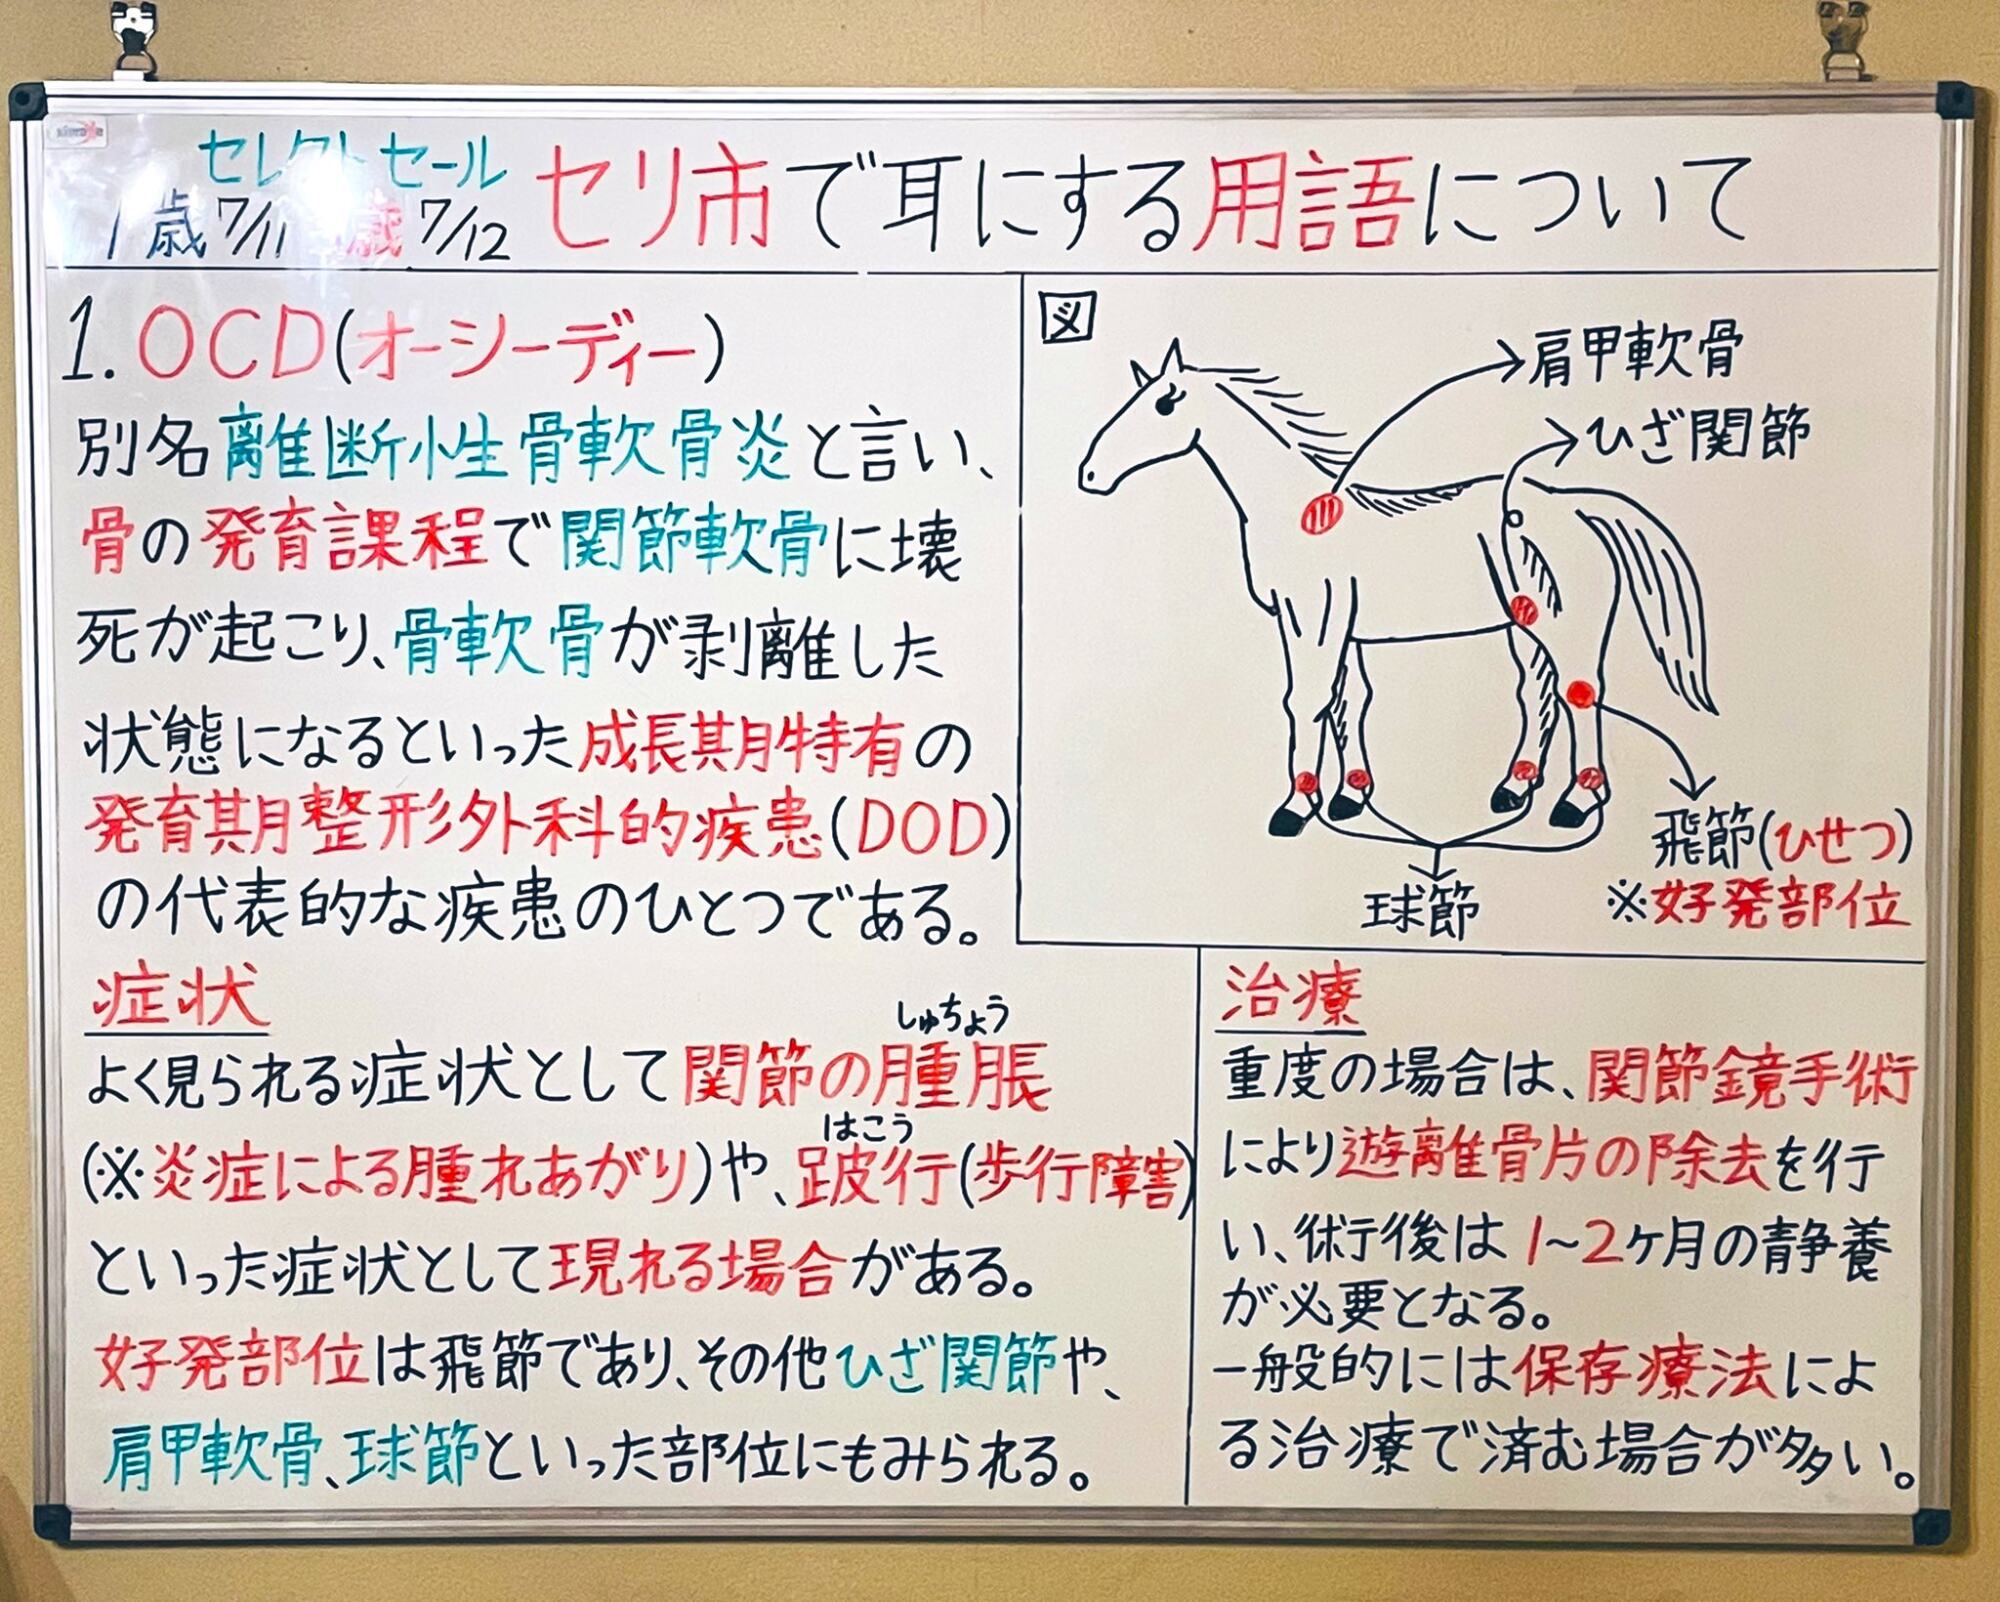 セレクトセール
1歳7/11 歳 7/12
セリ市で耳にする用語について
1. OCD(オーシーディー)
別名離断性骨軟骨炎と言い、
骨の発育課程で関節軟骨に壊
死が起こり、骨軟骨が剥離した
状態になるといった成長期特有の
発育期整形外科的疾患(DOD)
の代表的な疾患のひとつである。
図
肩甲軟骨
ひざ関節
飛節(ひせつ)
※好発部位
球節
症状
しゅちょう
よく見られる症状として関節の腫脹
はこう
(※炎症による腫れあがり)や、跛行(歩行障害)
といった症状として現れる場合がある。
好発部位は飛節であり、その他ひざ関節や、
肩甲軟骨、球節といった部位にもみられる。
治療
重度の場合は、関節鏡手術
により遊離骨片の除去を行
い、術後は1~2ヶ月の静養
が必要となる。
一般的には保存療法によ
る治療で済む場合が多い。